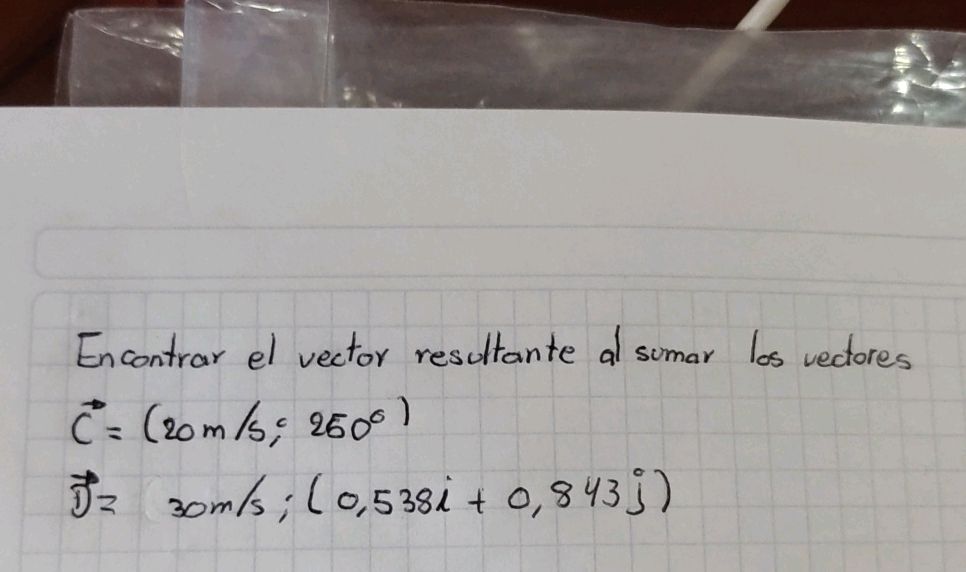 Encontrar el vector resultante al sumar los vectores
C⃗ = (20 m/s; 260°)
D⃗ = 30m/s; (0,538i + 0,843j)